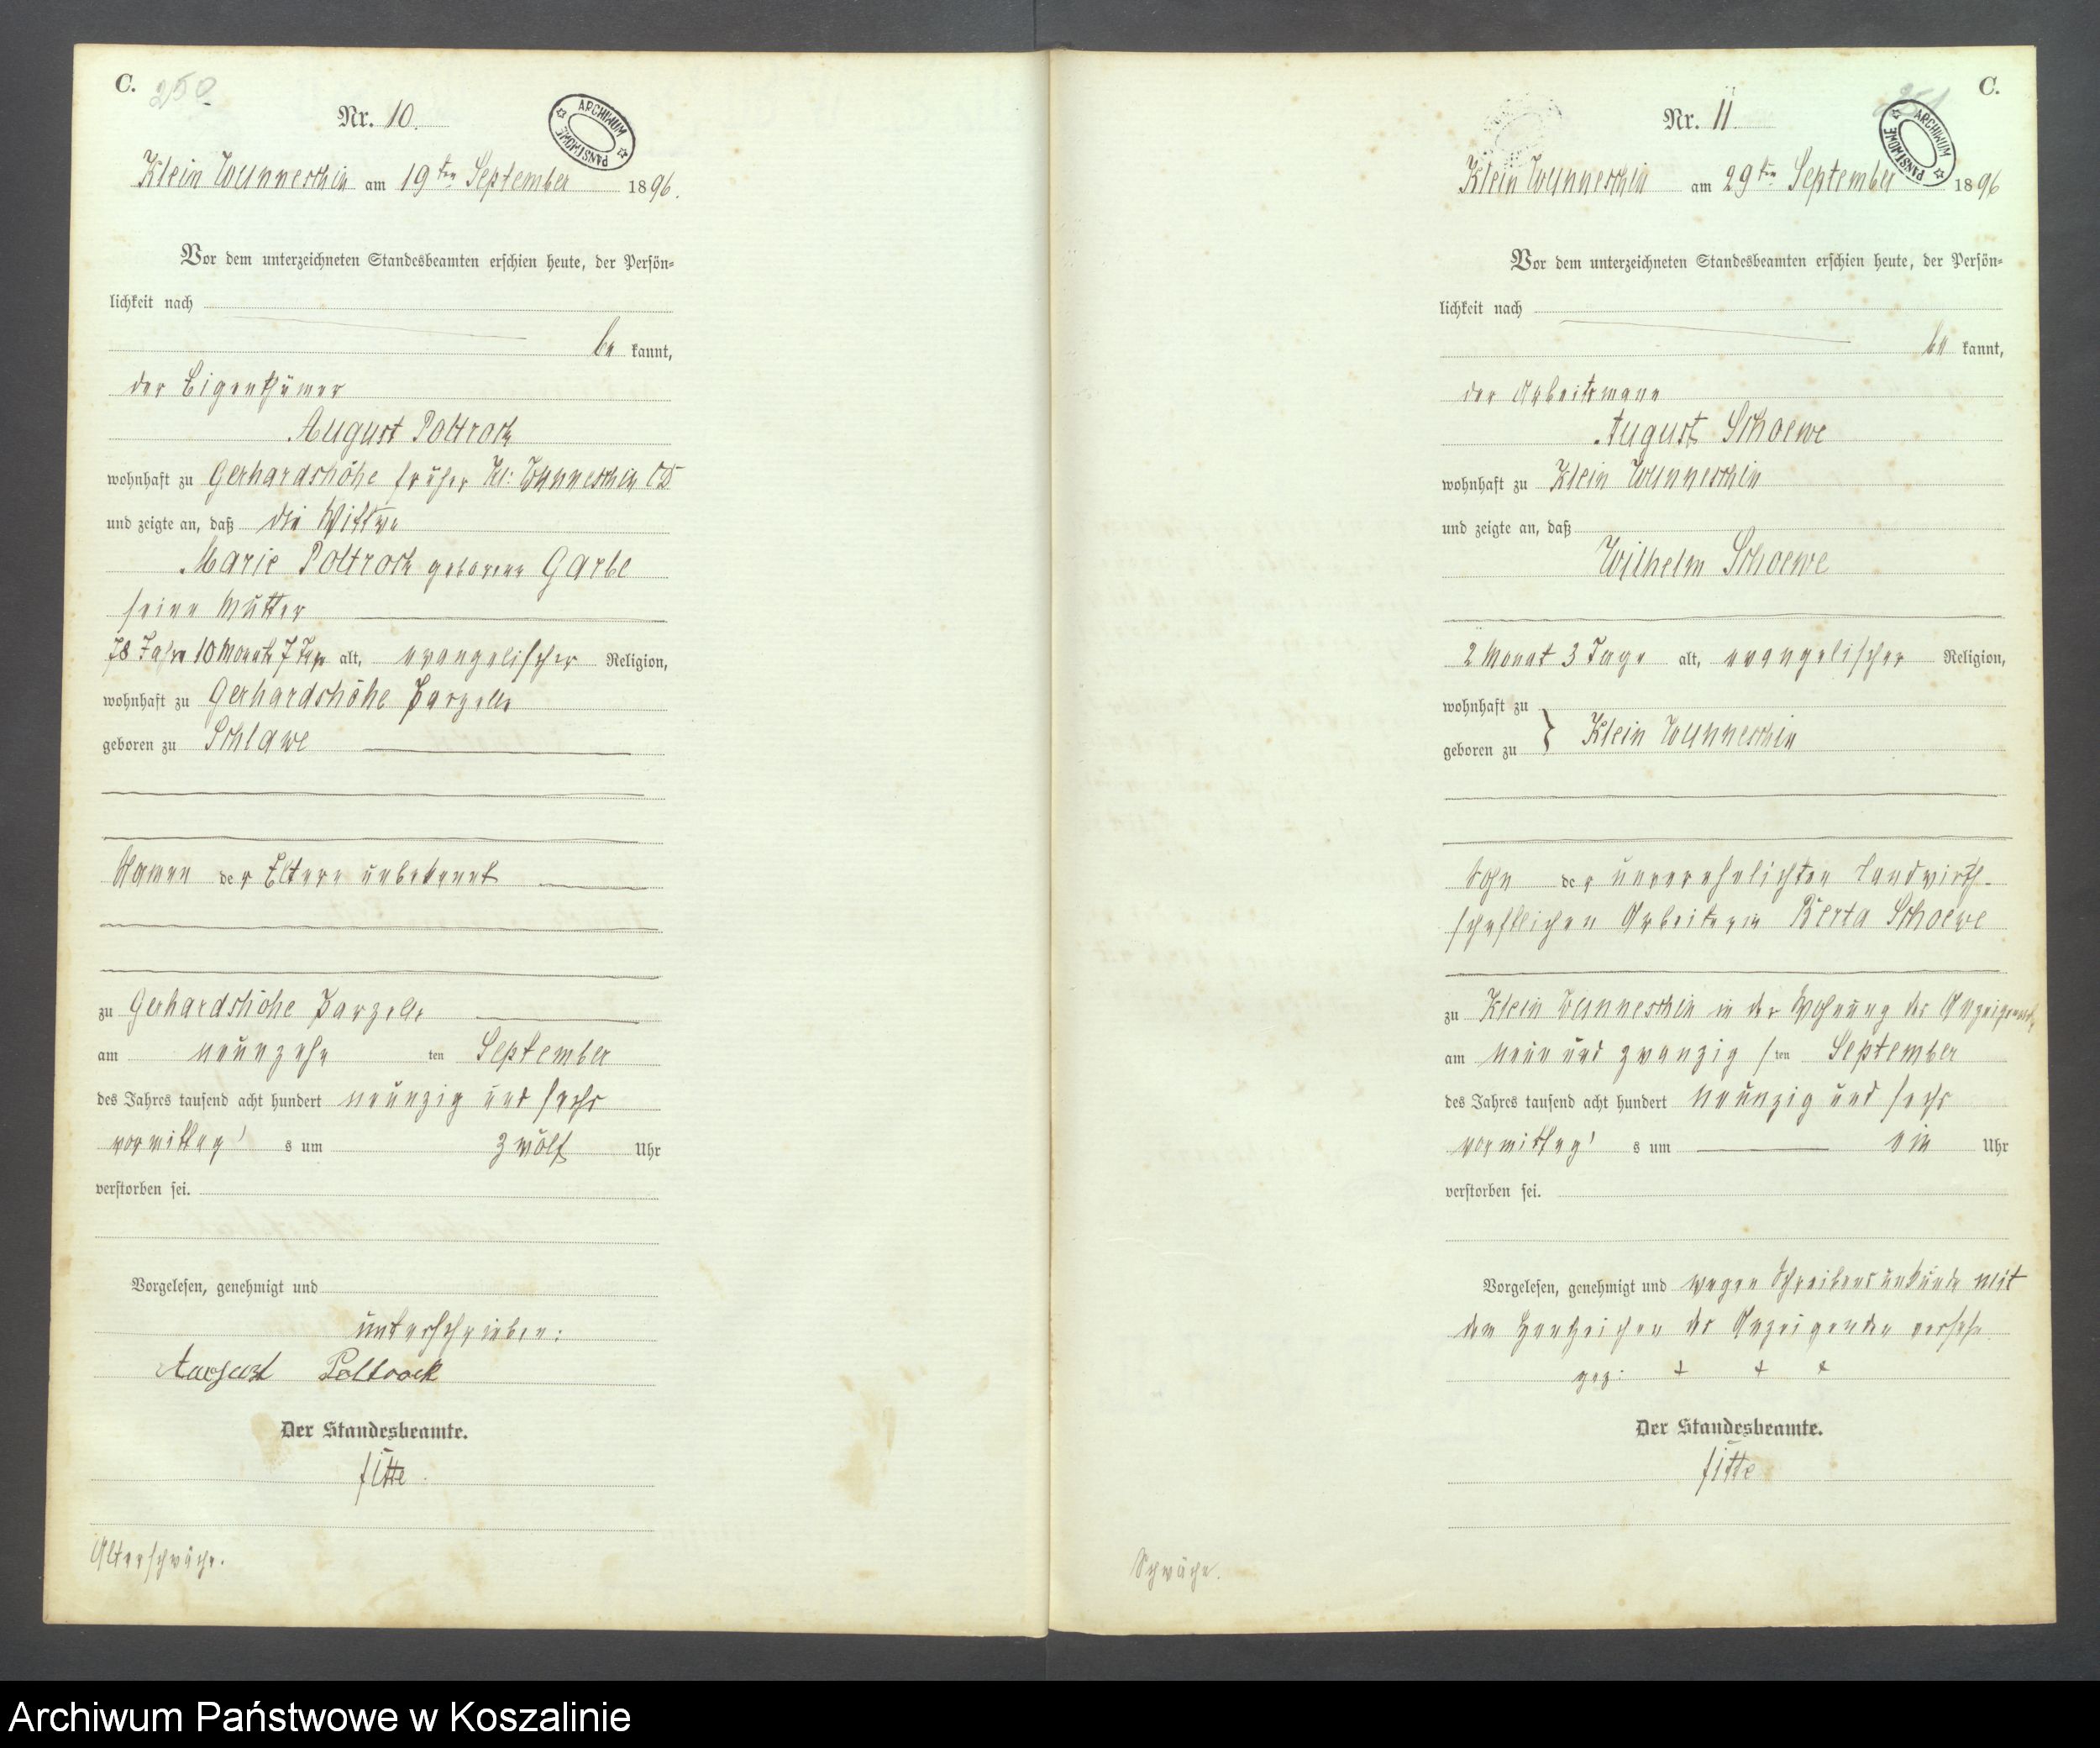 C. 250
Nr. 10.
ARCHIWUM PAŃSTWOWE
Klein Wunneschin am 19ten September 1896.
Vor dem unterzeichneten Standesbeamten erschien heute, der Persön-
lichkeit nach
be kannt,
der Eigenthümer
August Poltrock
wohnhaft zu Gerhardshöhe früher Kl: Wunneschin
und zeigte an, daß die Wittwe
Marie Poltrock geborene Garbe
seine Mutter
78 Jahre 10 Monate 7 Tage alt, evangelischer Religion,
wohnhaft zu Gerhardshöhe Parzelle
geboren zu Schlawe
Namen der Eltern unbekannt
zu Gerhardshöhe Parzelle
am neunzehn ten September
des Jahres tausend acht hundert neunzig und sechs
vormittag's um zwölf Uhr
verstorben sei.
Vorgelesen, genehmigt und
unterschrieben:
August Poltrock
Der Standesbeamte.
Fitte
Alterschwäche.
C.
251
Nr. 11
ARCHIWUM PAŃSTWOWE
Klein Wunneschin am 29ten September 1896
Vor dem unterzeichneten Standesbeamten erschien heute, der Persön-
lichkeit nach
be kannt,
der Arbeitsmann
August Schoewe
wohnhaft zu Klein Wunneschin
und zeigte an, daß
Wilhelm Schoewe
2 Monat 3 Tage alt, evangelischer Religion,
wohnhaft zu
geboren zu } Klein Wunneschin
Sohn der unverehelichten Landwirth-
schaftlichen Arbeiterin Berta Schoewe
zu Klein Wunneschin in der Wohnung des Anzeigenden
am neun und zwanzig sten September
des Jahres tausend acht hundert neunzig und sechs
vormittag's um ein Uhr
verstorben sei.
Vorgelesen, genehmigt und wegen Schreibensunkunde mit
dem Handzeichen des Anzeigenden versehn
gez: + + +
Der Standesbeamte.
Fitte
Schwäche.
Archiwum Państwowe w Koszalinie